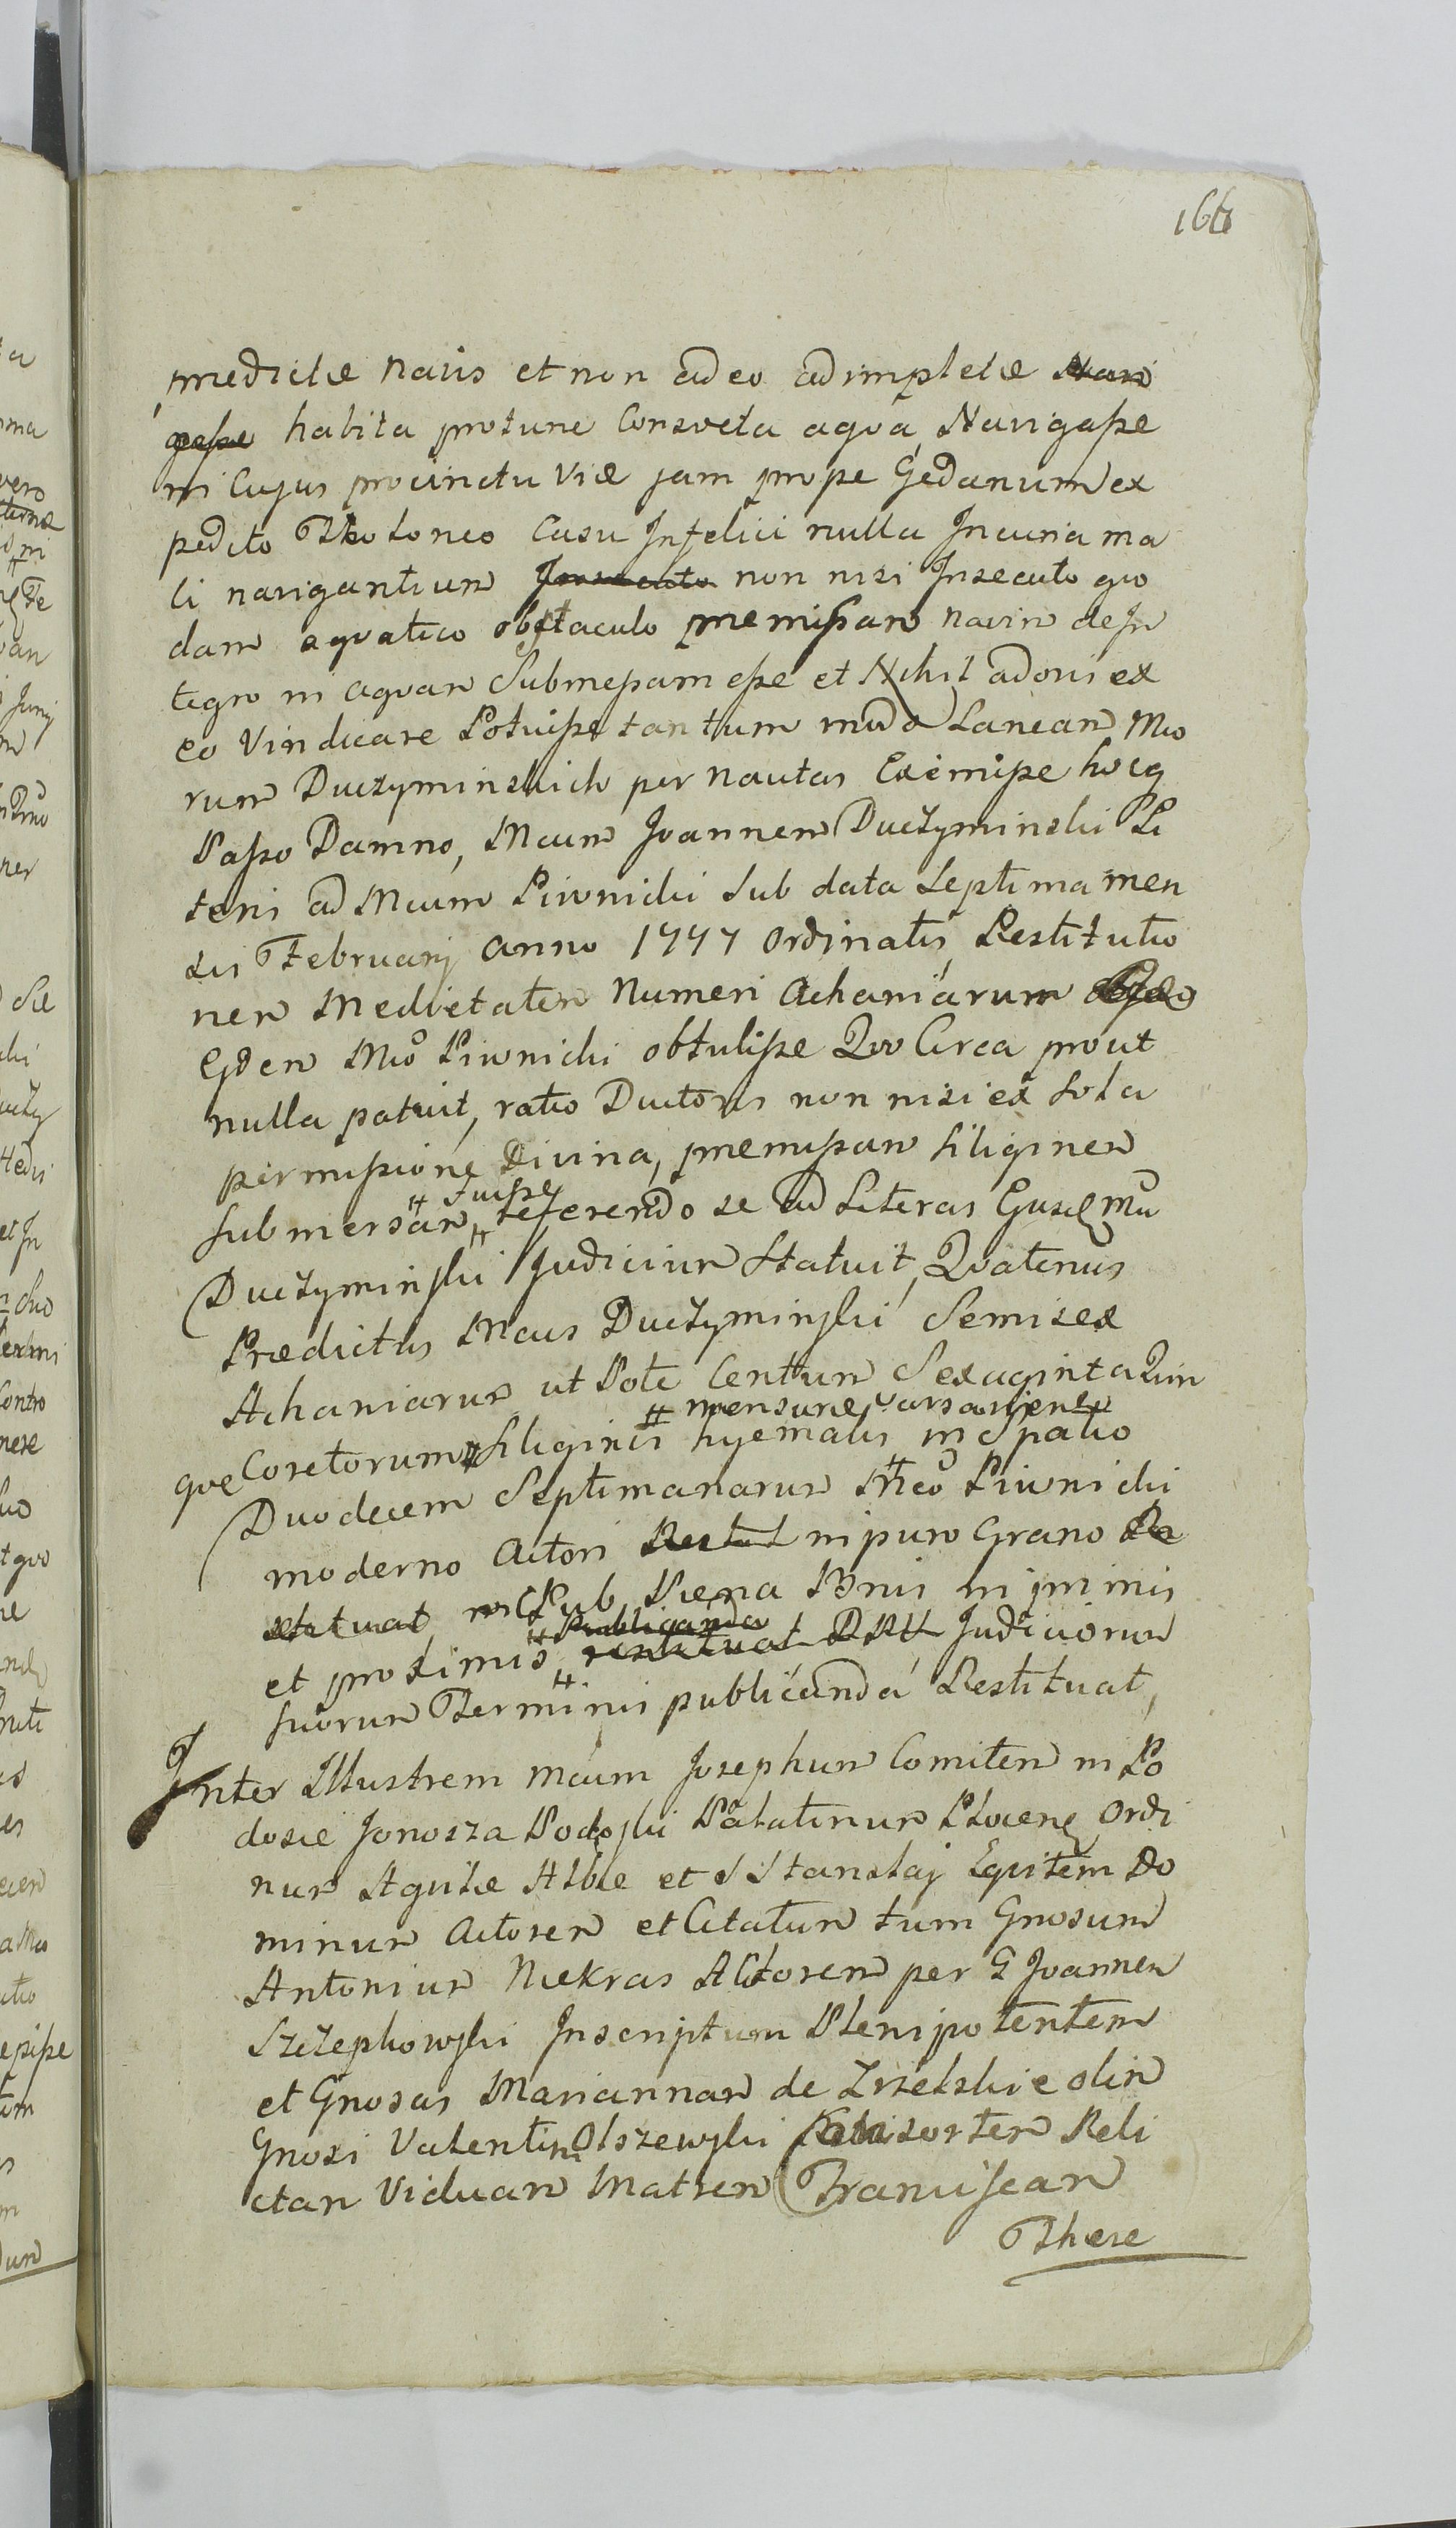 166
prædictæ Navis et non adeo adimpletæ Navi
gasse habita protunc Consveta aqva, Navigasse
in Cujus procinctu Viæ jam prope Gedanum ex
pedito Theloneo Casu Infelici nulla Incuria ma
li navigantium Insecuto non nisi Insecuto qvo
dam aqvatico obstaculo præmissam navim de In
tegro in aqvam Submersam esse et Nihil adoris ex
eo Vindicare Potuisse tantum modo Laneam Mco
rum Duczyminskich per Nautas Exemisse hocq
Passo Damno, Mcum Joannem Duczyminski Li
teris ad Mcum Piwnicki Sub data Septima men
sis Februarij anno 1777 Ordinatis, Restitutio
nem Medietatem Numeri Achaniarum
Eidem Mco Piwnicki obtulisse Qvo Circa prout
nulla patuit, ratio Ductoris non nisi ex Sola
permissione Divina, præmissam Siliginem
# Fuisse
Submersam # referendo se ad Literas Ejusdem Mci
Duczyminski Judicium Statuit, Qvatenus
Prædictus Mcus Duczyminski Semisex
Achaniarum ut Pote Centum Sexaginta Qvin
# mensuræ Varsavien
qve Coretorum # Siliginis hyemalis in Spatio
Duodecem Septimanarum Mco Piwnicki
moderno Actori Restit in puro Grano Re
stituat, Sub Pæna Bnis in primis
# Publicanda
et proximis # restituat Judiciorum
suorum Terminis publicanda Restituat,
Inter Illustrem Mcum Josephum Comitem in Po
dosie Jonosza Podoski Palatinum Plocen Ordi
num Aqvilæ Albæ et S Stanslaj Eqvitem Do
minum Actorem et Citatum tum Gnosum
Antonium Niekras Actorem per G Joannem
Szczepkowski Inscriptum Plenipotentem
et Gnosas Mariannam de Zrzelskie olim
Gnosi Valentini Olszewski Consortem Reli
ctam Viduam Matrem Franciscam
There